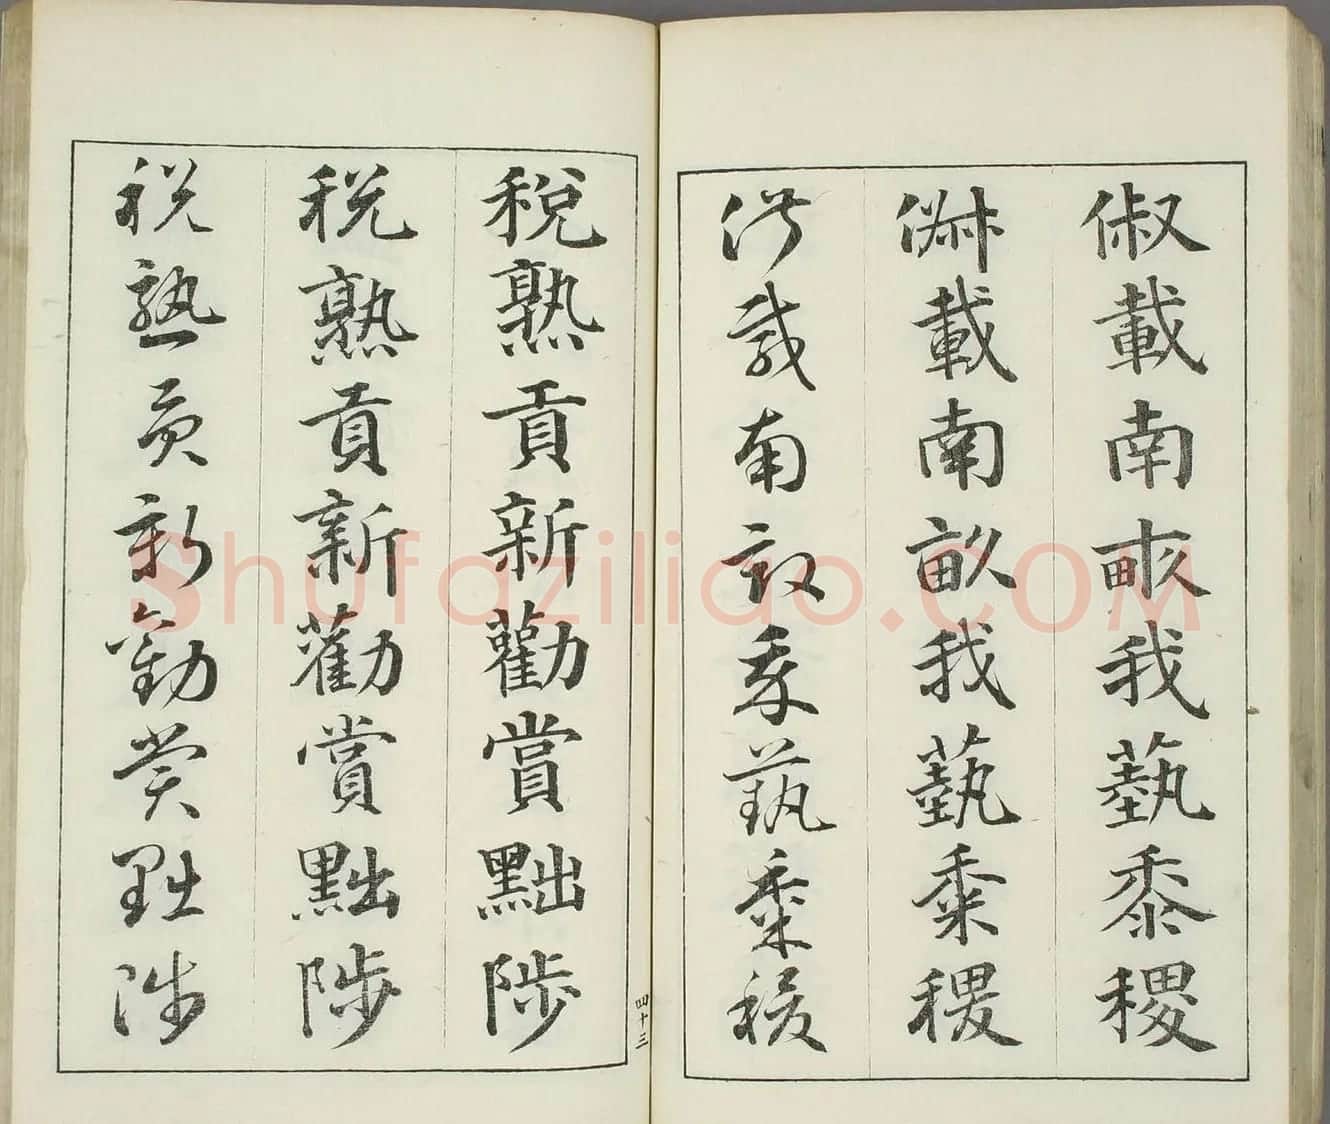 俶載南畝我藝黍稷
俶載南畝我藝黍稷
俶載南畝我藝黍稷
四十三
稅熟貢新勸賞黜陟
稅熟貢新勸賞黜陟
稅熟貢新勸賞黜陟
Shufaziliao.COM